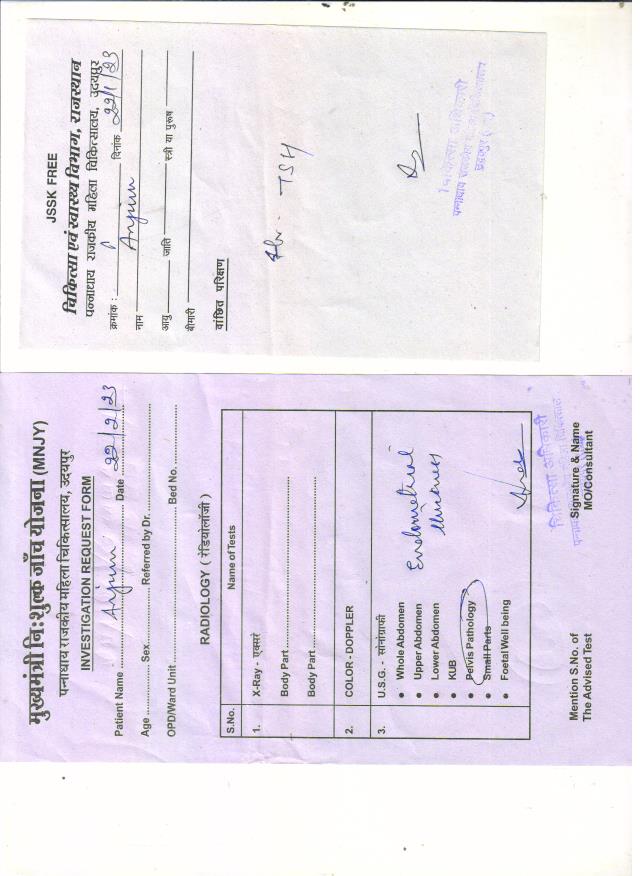 JSSK FREE
चिकित्सा एवं स्वास्थ्य विभाग, राजस्थान
पन्नाधाय राजकीय महिला चिकित्सालय, उदयपुर
क्रमांक : दिनांक 22/1/23
नाम Anjum
आयु जाति स्त्री या पुरुष
बीमारी
वांछित परिक्षण
TSH
चिकित्सा अधिकारी
मुख्यमंत्री निःशुल्क जाँच योजना (MNJY)
पन्नाधाय राजकीय महिला चिकित्सालय, उदयपुर
INVESTIGATION REQUEST FORM
Patient Name Anjum Date 22/2/23
Age Sex Referred by Dr.
OPD/Ward Unit Bed No.
RADIOLOGY ( रेडियोलॉजी )
S.No. Name of Tests
1. X-Ray - एक्सरे
Body Part
Body Part
2. COLOR - DOPPLER
3. U.S.G. - सोनोग्राफी
• Whole Abdomen
• Upper Abdomen
• Lower Abdomen
• KUB
• Pelvis Pathology
• Small Parts
• Foetal Well being
Endometrial
thickness
चिकित्सा अधिकारी
Mention S.No. of
The Advised Test
Signature & Name
MO/Consultant